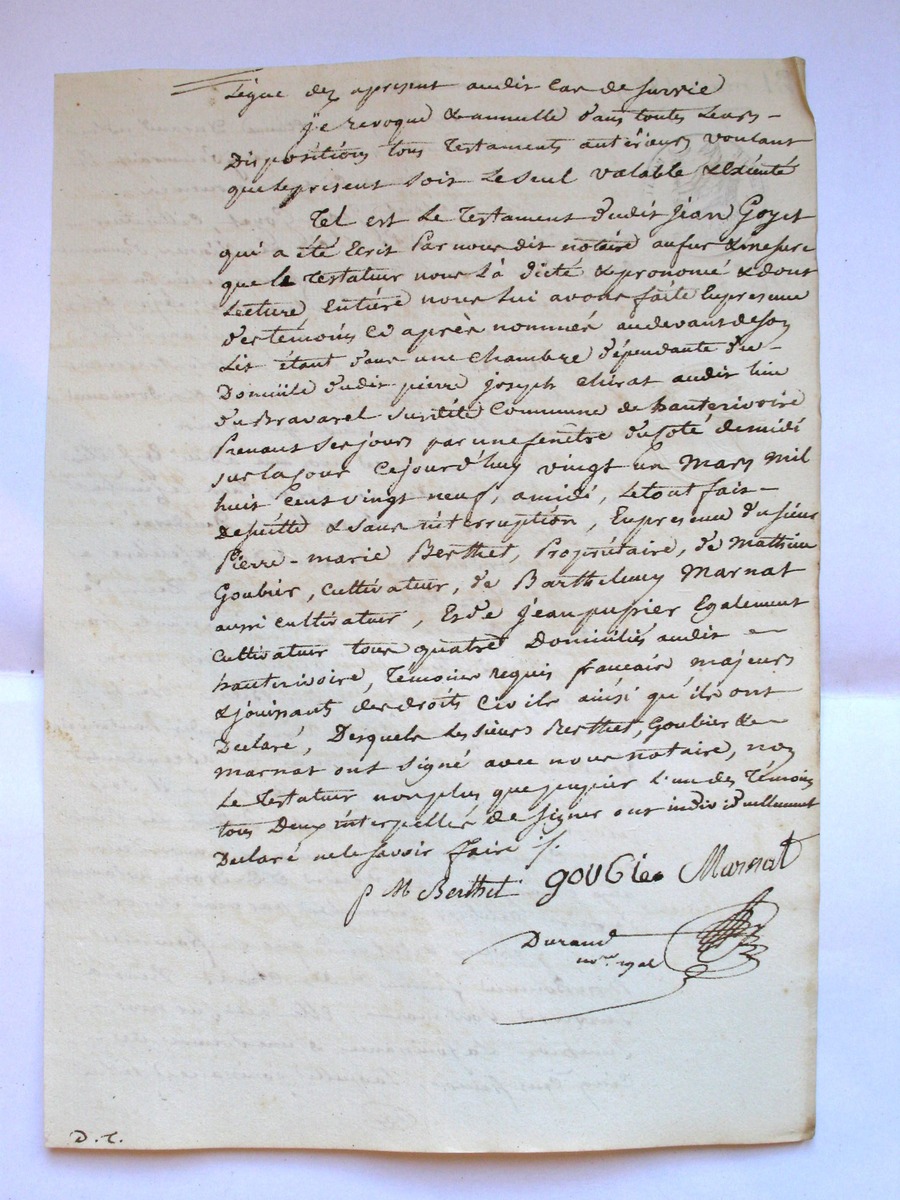 Legue dez apresent audit cas de survie
je revoque & annulle dans toutes leurs -
Dispositions tous Testaments antérieurs voulant
que le present soit le seul valable & éxécuté
Tel est le Testament dudit Jean Goyet
qui a été Ecrit Par nous dit notaire au fur & mesure
que le Testateur nous l'à dicté & prononcé & dont
Lecture Entiére nous lui avons faite En presence
des temoins ci aprés nommés au devant de son
Lit étant dans une chambre dépendante du -
Domicile dudit pierre joseph chirat audit lieu
du Bravarel susdite Commune de hauterivoire
Prenant ses jours par une fenêtre du Coté de midi
sur la Cour Cejourd'huy vingt un Mars mil
huit cent vingt neuf, a midi, Le tout fait -
De suitte & sans interruption, En presence du sieur
Pierre - marie Berthet, Propriétaire, de Mathieu
Goubier, Cultivateur, de Barthelemy Marnat
aussi cultivateur, Et de jean pupier Egalement
Cultivateur tous quatre Domiciliés audit -
hauterivoire, Temoins requis francais majeurs
& jouissants des droits Civils ainsi qu'ils ont
Declaré, Desquels les sieurs Berthet, Goubier & -
Marnat ont signé avec nous notaire, non
Le Testateur non plus que pupier l'un des Témoins
tous Deux interpellés de signer ont individuellement
Declaré ne le savoir faire ./.
p M Berthet gouBier Marnat
Durand
nore. royal
D. T.